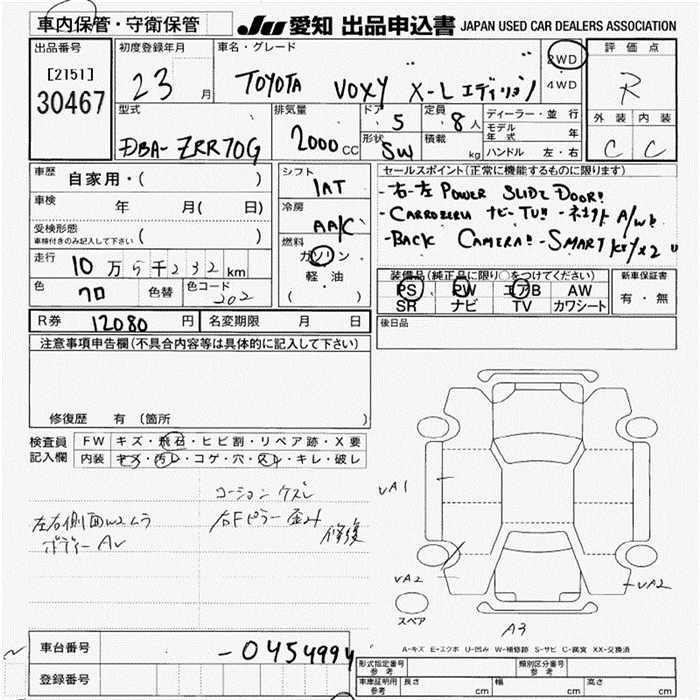 車内保管・守衛保管
JU 愛知 出品申込書 JAPAN USED CAR DEALERS ASSOCIATION
出品番号 初度登録年月 車名・グレード 2WD 評価点
[2151] 23 月 TOYOTA VOXY X-L エディション 4WD R
30467
型式 排気量 ドア 5 定員 8人 ディーラー・並行 外装 内装
DBA-ZRR70G 2000 CC 形状 SW 積載 kg モデル年式 年 C C
ハンドル 左・右
車歴 自家用・( ) シフト セールスポイント(正常に機能するものに限ります)
1AT -右-左 POWER SLIDE DOOR!!
車検 年 月( 日) 冷房 -CARROZERU ナビ-TV!!
受検形態 AA/C -BACK CAMERA!! -SMART KEYx2
車検付きのみ記入して下さい ( )
走行 10万5千232km 燃料 ガソリン
軽・油
( )
装備品(純正品に限り○をつけてください) 新車保証書
色 クロ 色替 色コード 202 PS PW エアB AW 有・無
SR ナビ TV カワシート
R券 12080 円 名変期限 月 日 後日品
注意事項申告欄(不具合内容等は具体的に記入して下さい)
修復歴 有 (箇所 )
検査員 FW キズ・飛石・ヒビ割・リペア跡・X要
記入欄 内装 キズ・汚レ・コゲ・穴・スレ・キレ・破レ
コーション ケズレ
左右側面W2ムラ 右Fピラー歪み 修復
ボディー
A1
A2
A2
スペア
A3
A-キズ E-エクボ U-凹み W-補修跡 S-サビ C-腐食 XX-交換済
車台番号 -0454994
登録番号
形式指定番号 参考 類別区分番号 参考
車庫証明用 参考 長さ cm 幅 cm 高さ cm